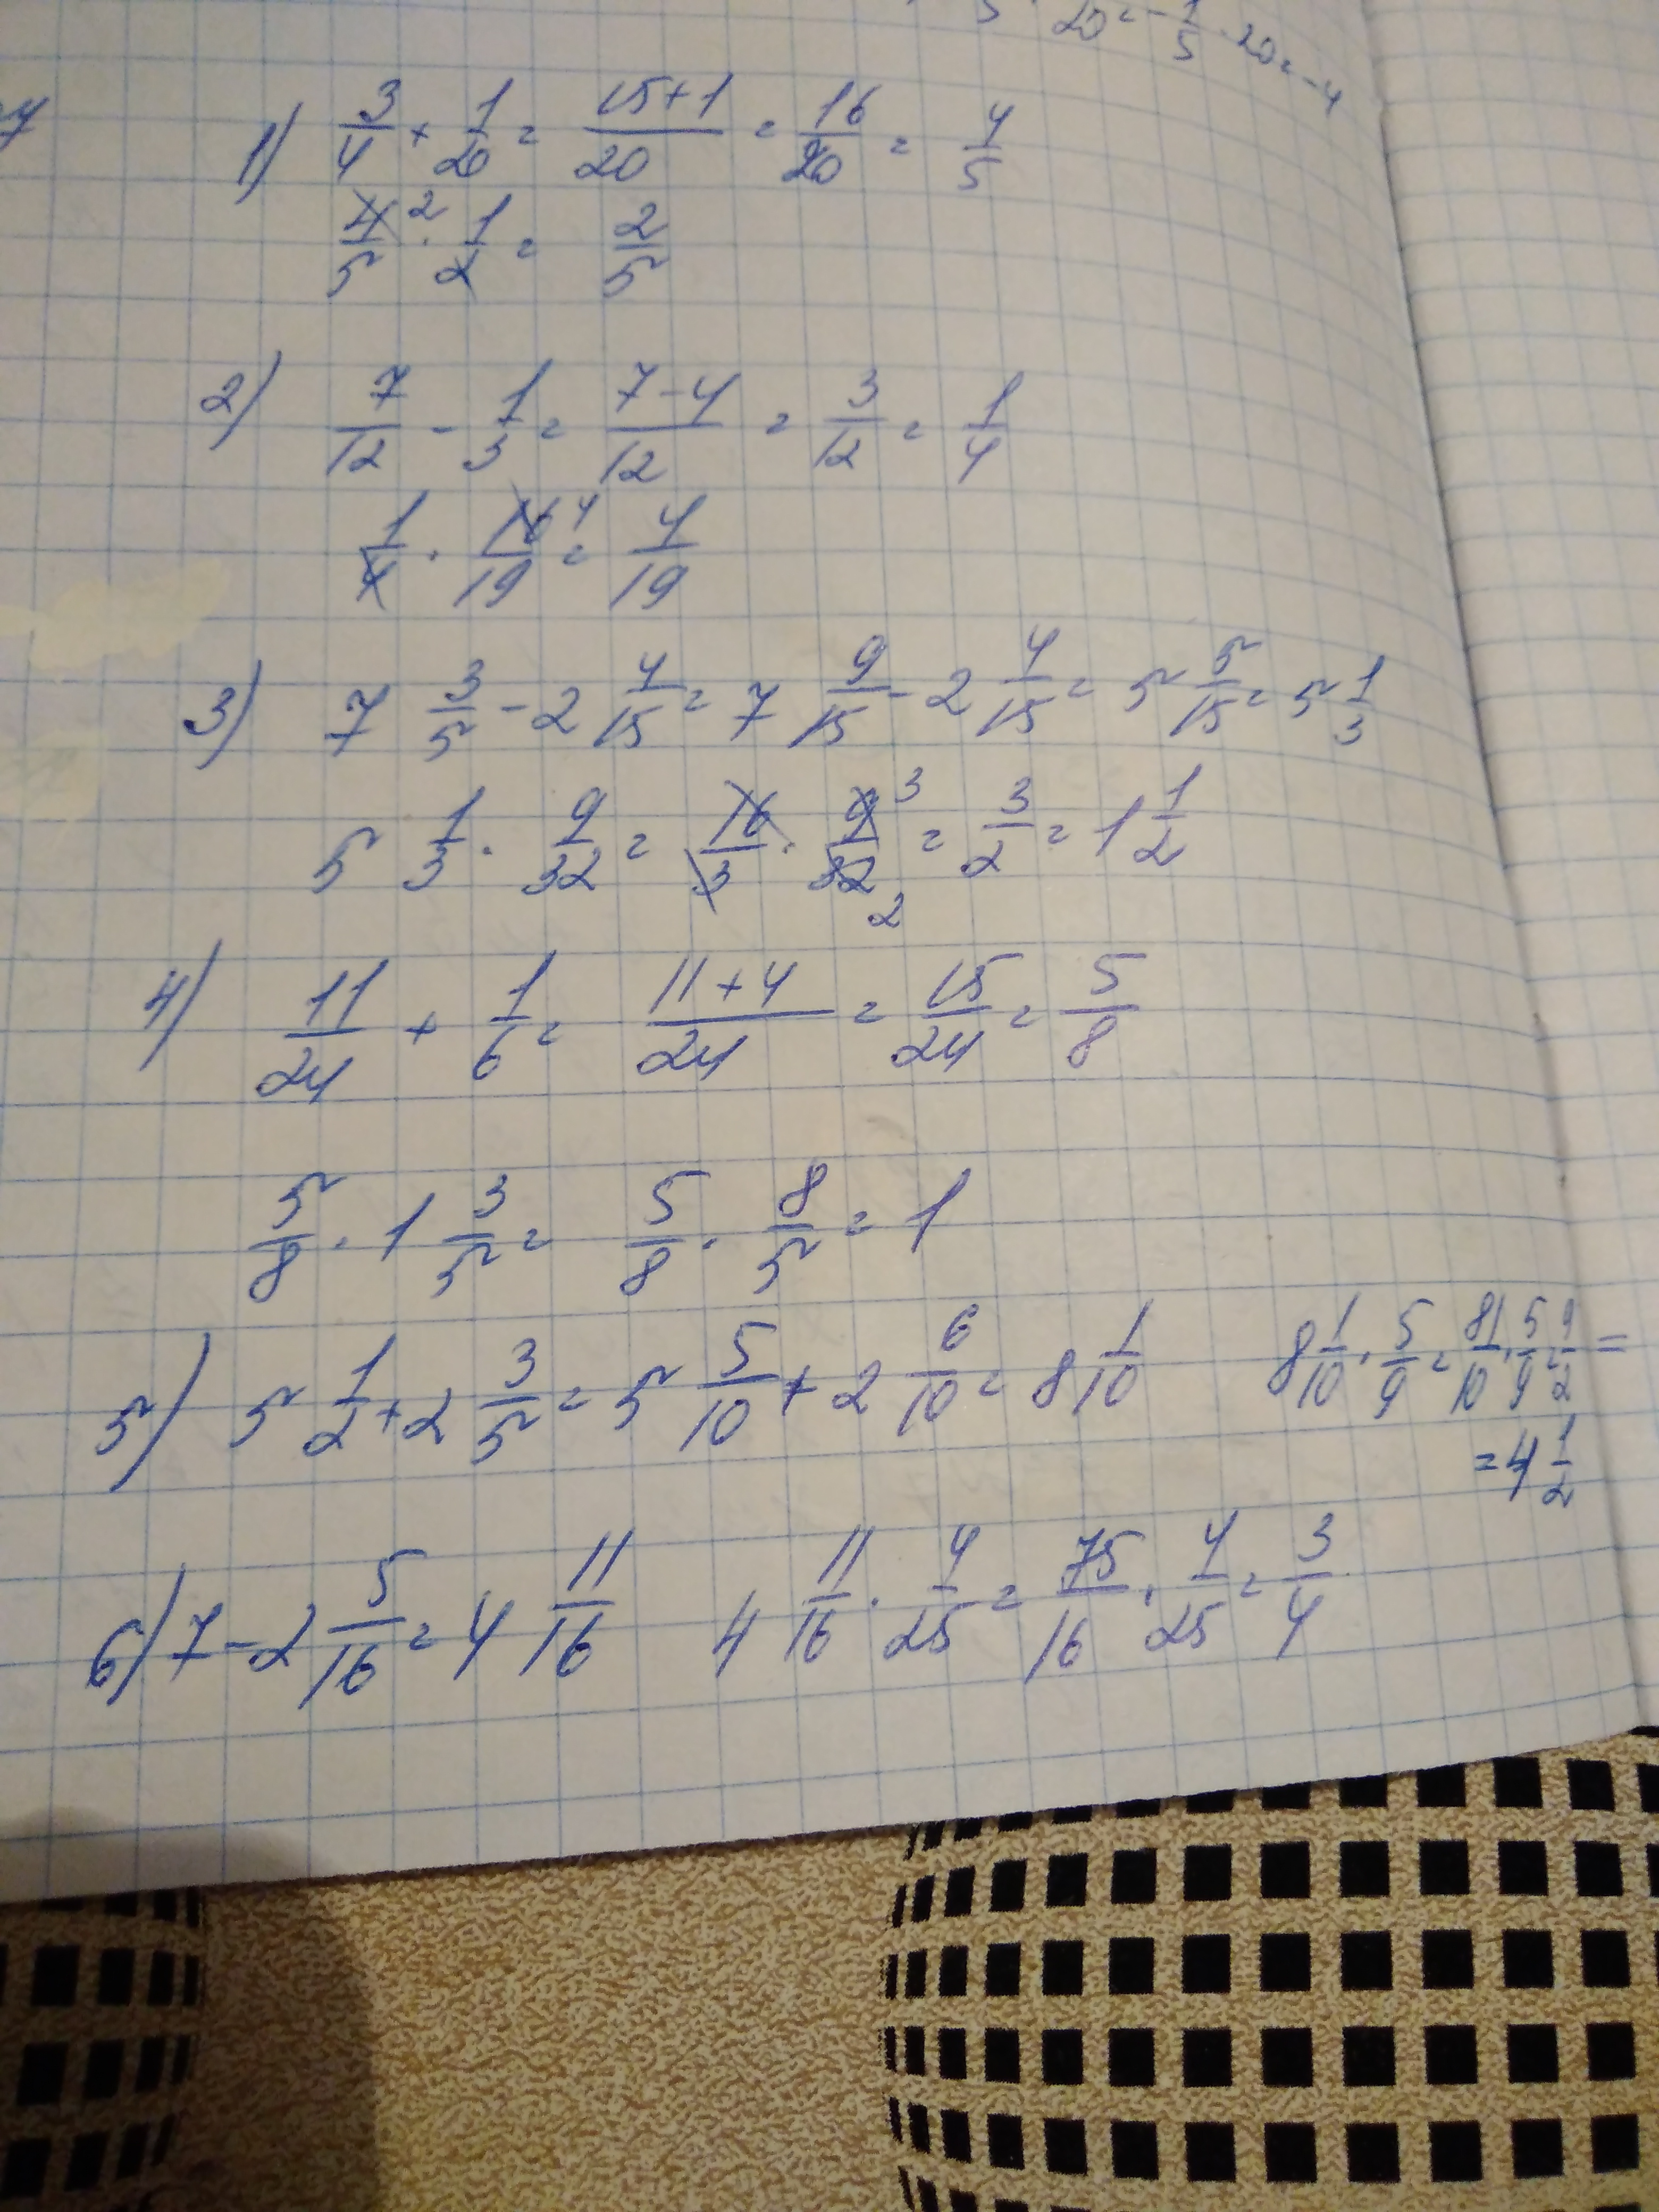 20 = -1/5 · 20 = -4
1) 3/4 + 1/20 = 15+1/20 = 16/20 = 4/5
4/5 ² · 1/2 = 2/5
2) 7/12 - 1/3 = 7-4/12 = 3/12 = 1/4
1/4 · 16/19 ⁴ = 4/19
3) 7 3/5 - 2 4/15 = 7 9/15 - 2 4/15 = 5 5/15 = 5 1/3
5 1/3 · 9/32 = 16/3 · 9/32 ³ ₂ = 3/2 = 1 1/2
4) 11/24 + 1/6 = 11+4/24 = 15/24 = 5/8
5/8 · 1 3/5 = 5/8 · 8/5 = 1
5) 5 1/2 + 2 3/5 = 5 5/10 + 2 6/10 = 8 1/10 8 1/10 · 5/9 = 81/10 · 5/9 = 9/2 =
= 4 1/2
6) 7 - 2 5/16 = 4 11/16 4 11/16 · 4/25 = 75/16 · 4/25 = 3/4